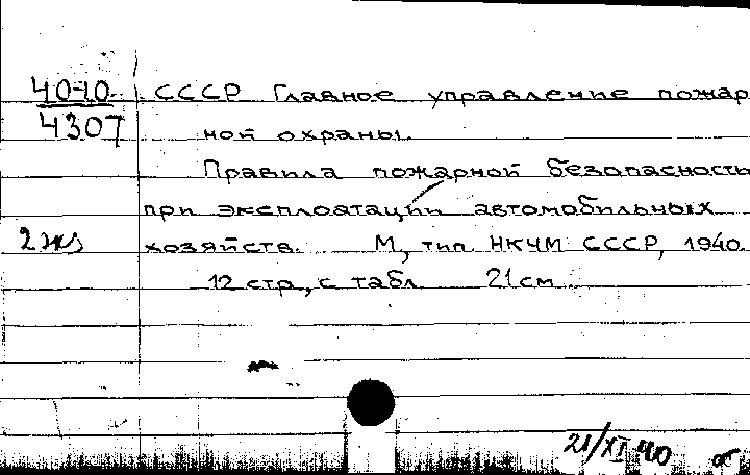 40-10 СССР Главное управление пожар
4307 ной охраны.
Правила пожарной безопасность
при эксплоатации автомобильных
2 экз хозяйств. М, тип НКЧМ СССР, 1940.
12 стр, с табл 21 см
21/XI 40